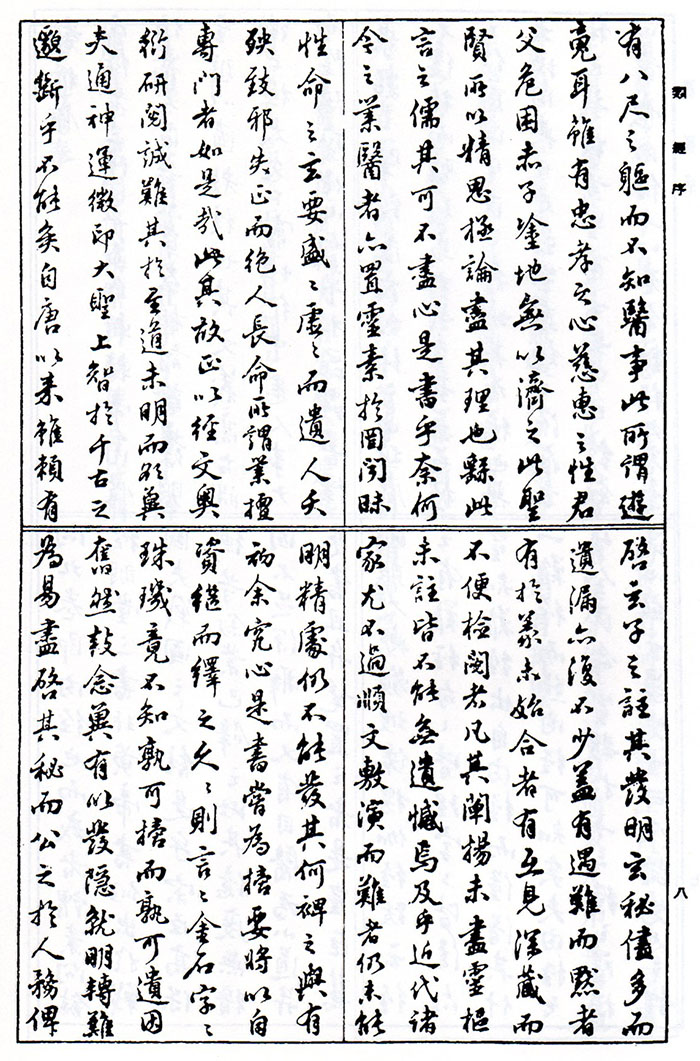 類經序
有八尺之軀而不知醫事此所謂遊
魂耳雖有忠孝之心慈惠之性君
父危困赤子塗地無以濟之此聖
賢所以精思極論盡其理也繇此
言之儒其可不盡心是書乎奈何
今之業醫者亦置靈素於罔聞昧
性命之玄要盛〻虛〻而遺人夭
殃致邪失正而絕人長命所謂業擅
專門者如是哉此其故正以經文奧
衍研閱誠難其於至道未明而欲冀
夫通神運微卬大聖上智於千古之
邈斷乎不能矣自唐以來雖賴有
啓玄子之註其發明玄秘儘多而
遺漏亦復不少蓋有遇難而默者
有於義未始合者有互見深藏而
不便檢閱者凡其闡揚未盡靈樞
未註皆不能無遺憾焉及乎近代諸
家尤不過順文敷演而難者仍未能
明精處仍不能發其何裨之與有
初余究心是書嘗為摘要將以自
資繼而繹之久〻則言〻金石字〻
珠璣竟不知孰可摘而孰可遺因
奮然鼓念冀有以發隱就明轉難
為易盡啓其秘而公之於人務俾
八